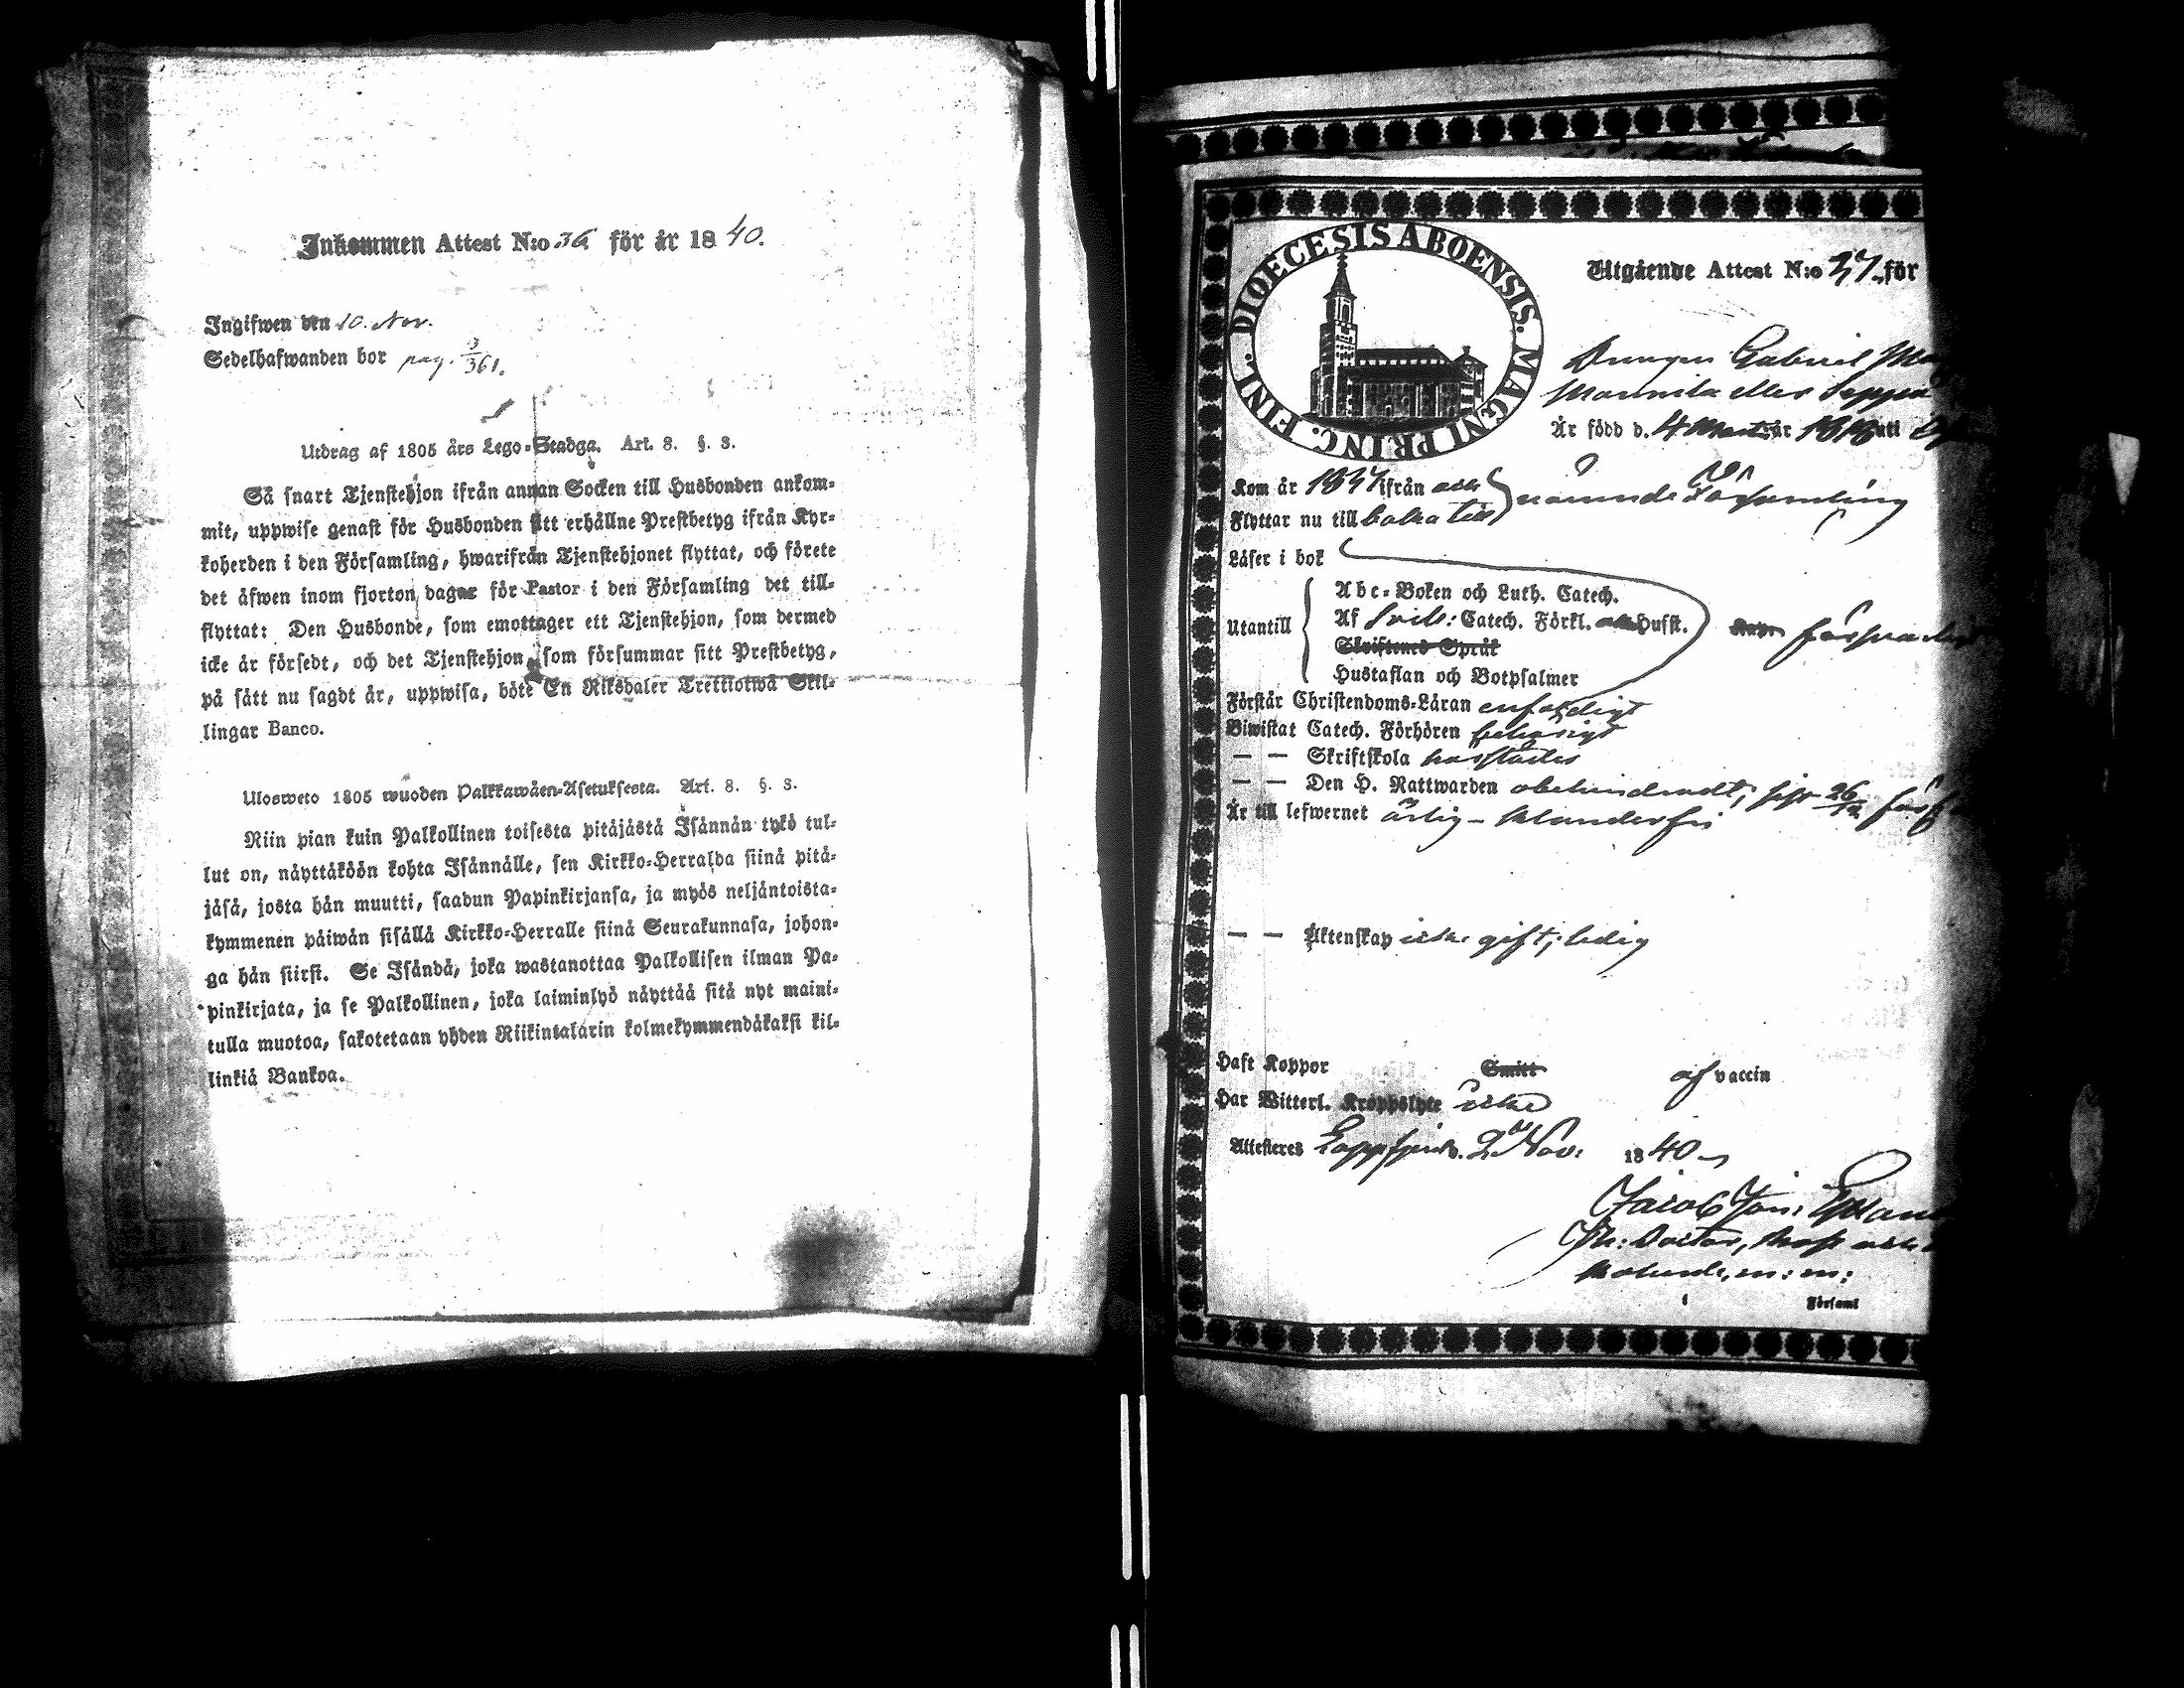 Inkommen Attest N:o 36 för år 1840.
Ingifwen den 10. Nov.
Sedelhafwanden bor pag. 3/361.
Utdrag af 1805 års Lego-Stadga. Art. 8. §. 3.
Så snart Tjenstehjon ifrån annan Socken till Husbonden ankom-
mit, uppwise genast för Husbonden sitt erhållne Prestbetyg ifrån Kyr-
koherden i den Församling, hwarifrån Tjenstehjonet flyttat, och förete
det äfwen inom fjorton dagar för Pastor i den Församling det till-
flyttat: Den Husbonde, som emottager ett Tjenstehjon, som dermed
icke är försedt, och det Tjenstehjon, som försummar sitt Prestbetyg,
på sätt nu sagdt är, uppwisa, böte En Riksdaler Trettiotwå Skil-
lingar Banco.
Ulosweto 1805 wuoden Palkkawäen-Asetuksesta. Art. 8. §. 3.
Niin pian kuin Palkollinen toisesta pitäjästä Isännän tykö tul-
lut on, näyttäköön kohta Isännälle, sen Kirkko-Herralda siinä pitä-
jäsä, josta hän muutti, saadun Papinkirjansa, ja myös neljäntoista-
kymmenen päiwän sisällä Kirkko-Herralle siinä Seurakunnasa, johon-
ga hän siirsi. Se Isändä, joka wastanottaa Palkollisen ilman Pa-
pinkirjata, ja se Palkollinen, joka laiminlyö näyttää sitä nyt maini-
tulla muotoa, sakotetaan yhden Riikintalarin kolmekymmendäkaksi kil-
linkiä Bankoa.
DIOECESIS ABOENSIS. MAGNI PRINC. FINL.
Utgående Attest N:o 37 för
Drengen Gabriel
Mannila eller
Är född d. 4 Martii år 1818 uti
Kom år 1837 ifrån och nämnde Församling
Flyttar nu till baka till
Läser i bok
Utantill
Abc-Boken och Luth. Catech.
Af Svib: Catech. Förkl. Husst.
Skriftenes Språk
Hustaflan och Botpsalmer
Förstår Christendoms-Läran enfaldigt
Biwistat Catech. Förhören behörigt
— — Skriftskola
— — Den H. Nattwarden obehindradt, sist 26
Är till lefwernet ärlig - klanderfri
— — Äktenskap icke gift, ledig
Haft Koppor Smitt af vaccin
Har Witterl. Kropps­lyte icke
Attesteres Lappfjerd. 2 Nov. 1840
Jacob Jon:
Ph: Doctor, Prost och
Kyrkoherde, m: m:
i Församl